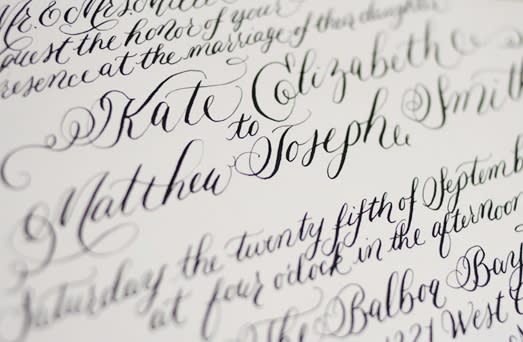 Mr. & Mrs.
the honor of your
at the marriage of their daughter
Kate Elizabeth
to
Matthew Joseph Smith
Saturday the twenty fifth of
at four o'clock in the afternoon
The Balboa Bay
West